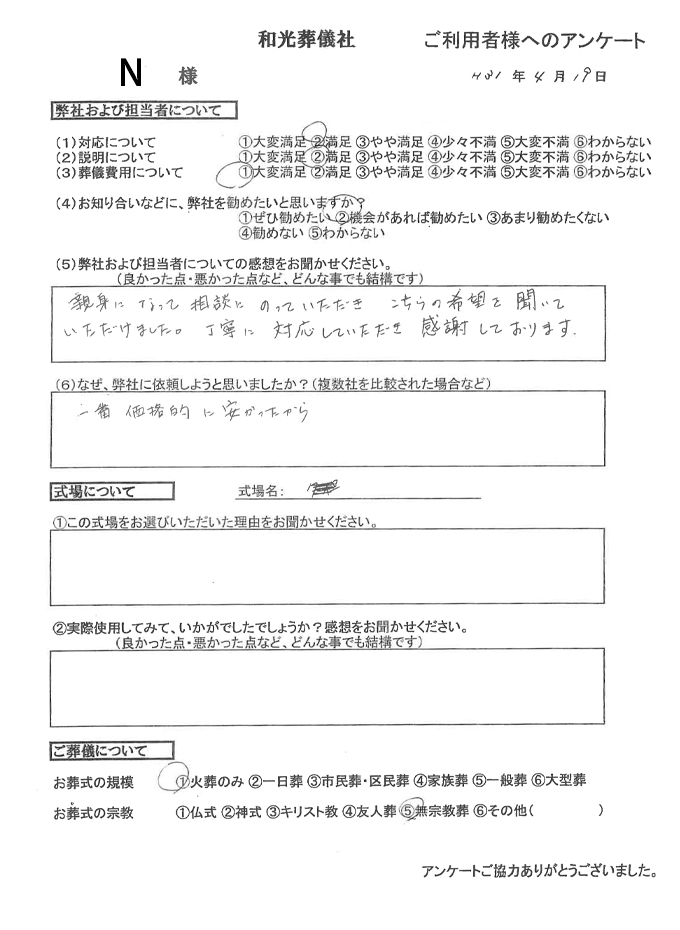 和光葬儀社 ご利用者様へのアンケート
N 様 H31年4月19日
弊社および担当者について
(1)対応について ①大変満足 ②満足 ③やや満足 ④少々不満 ⑤大変不満 ⑥わからない
(2)説明について ①大変満足 ②満足 ③やや満足 ④少々不満 ⑤大変不満 ⑥わからない
(3)葬儀費用について ①大変満足 ②満足 ③やや満足 ④少々不満 ⑤大変不満 ⑥わからない
(4)お知り合いなどに、弊社を勧めたいと思いますか?
①ぜひ勧めたい ②機会があれば勧めたい ③あまり勧めたくない
④勧めない ⑤わからない
(5)弊社および担当者についての感想をお聞かせください。
(良かった点・悪かった点など、どんな事でも結構です)
親身になって相談にのっていただき こちらの希望を聞いて
いただけました。丁寧に対応していただき 感謝しております.
(6)なぜ、弊社に依頼しようと思いましたか?(複数社を比較された場合など)
一番価格的に安かったから
式場について 式場名:
①この式場をお選びいただいた理由をお聞かせください。
②実際使用してみて、いかがでしたでしょうか?感想をお聞かせください。
(良かった点・悪かった点など、どんな事でも結構です)
ご葬儀について
お葬式の規模 ①火葬のみ ②一日葬 ③市民葬・区民葬 ④家族葬 ⑤一般葬 ⑥大型葬
お葬式の宗教 ①仏式 ②神式 ③キリスト教 ④友人葬 ⑤無宗教葬 ⑥その他( )
アンケートご協力ありがとうございました。